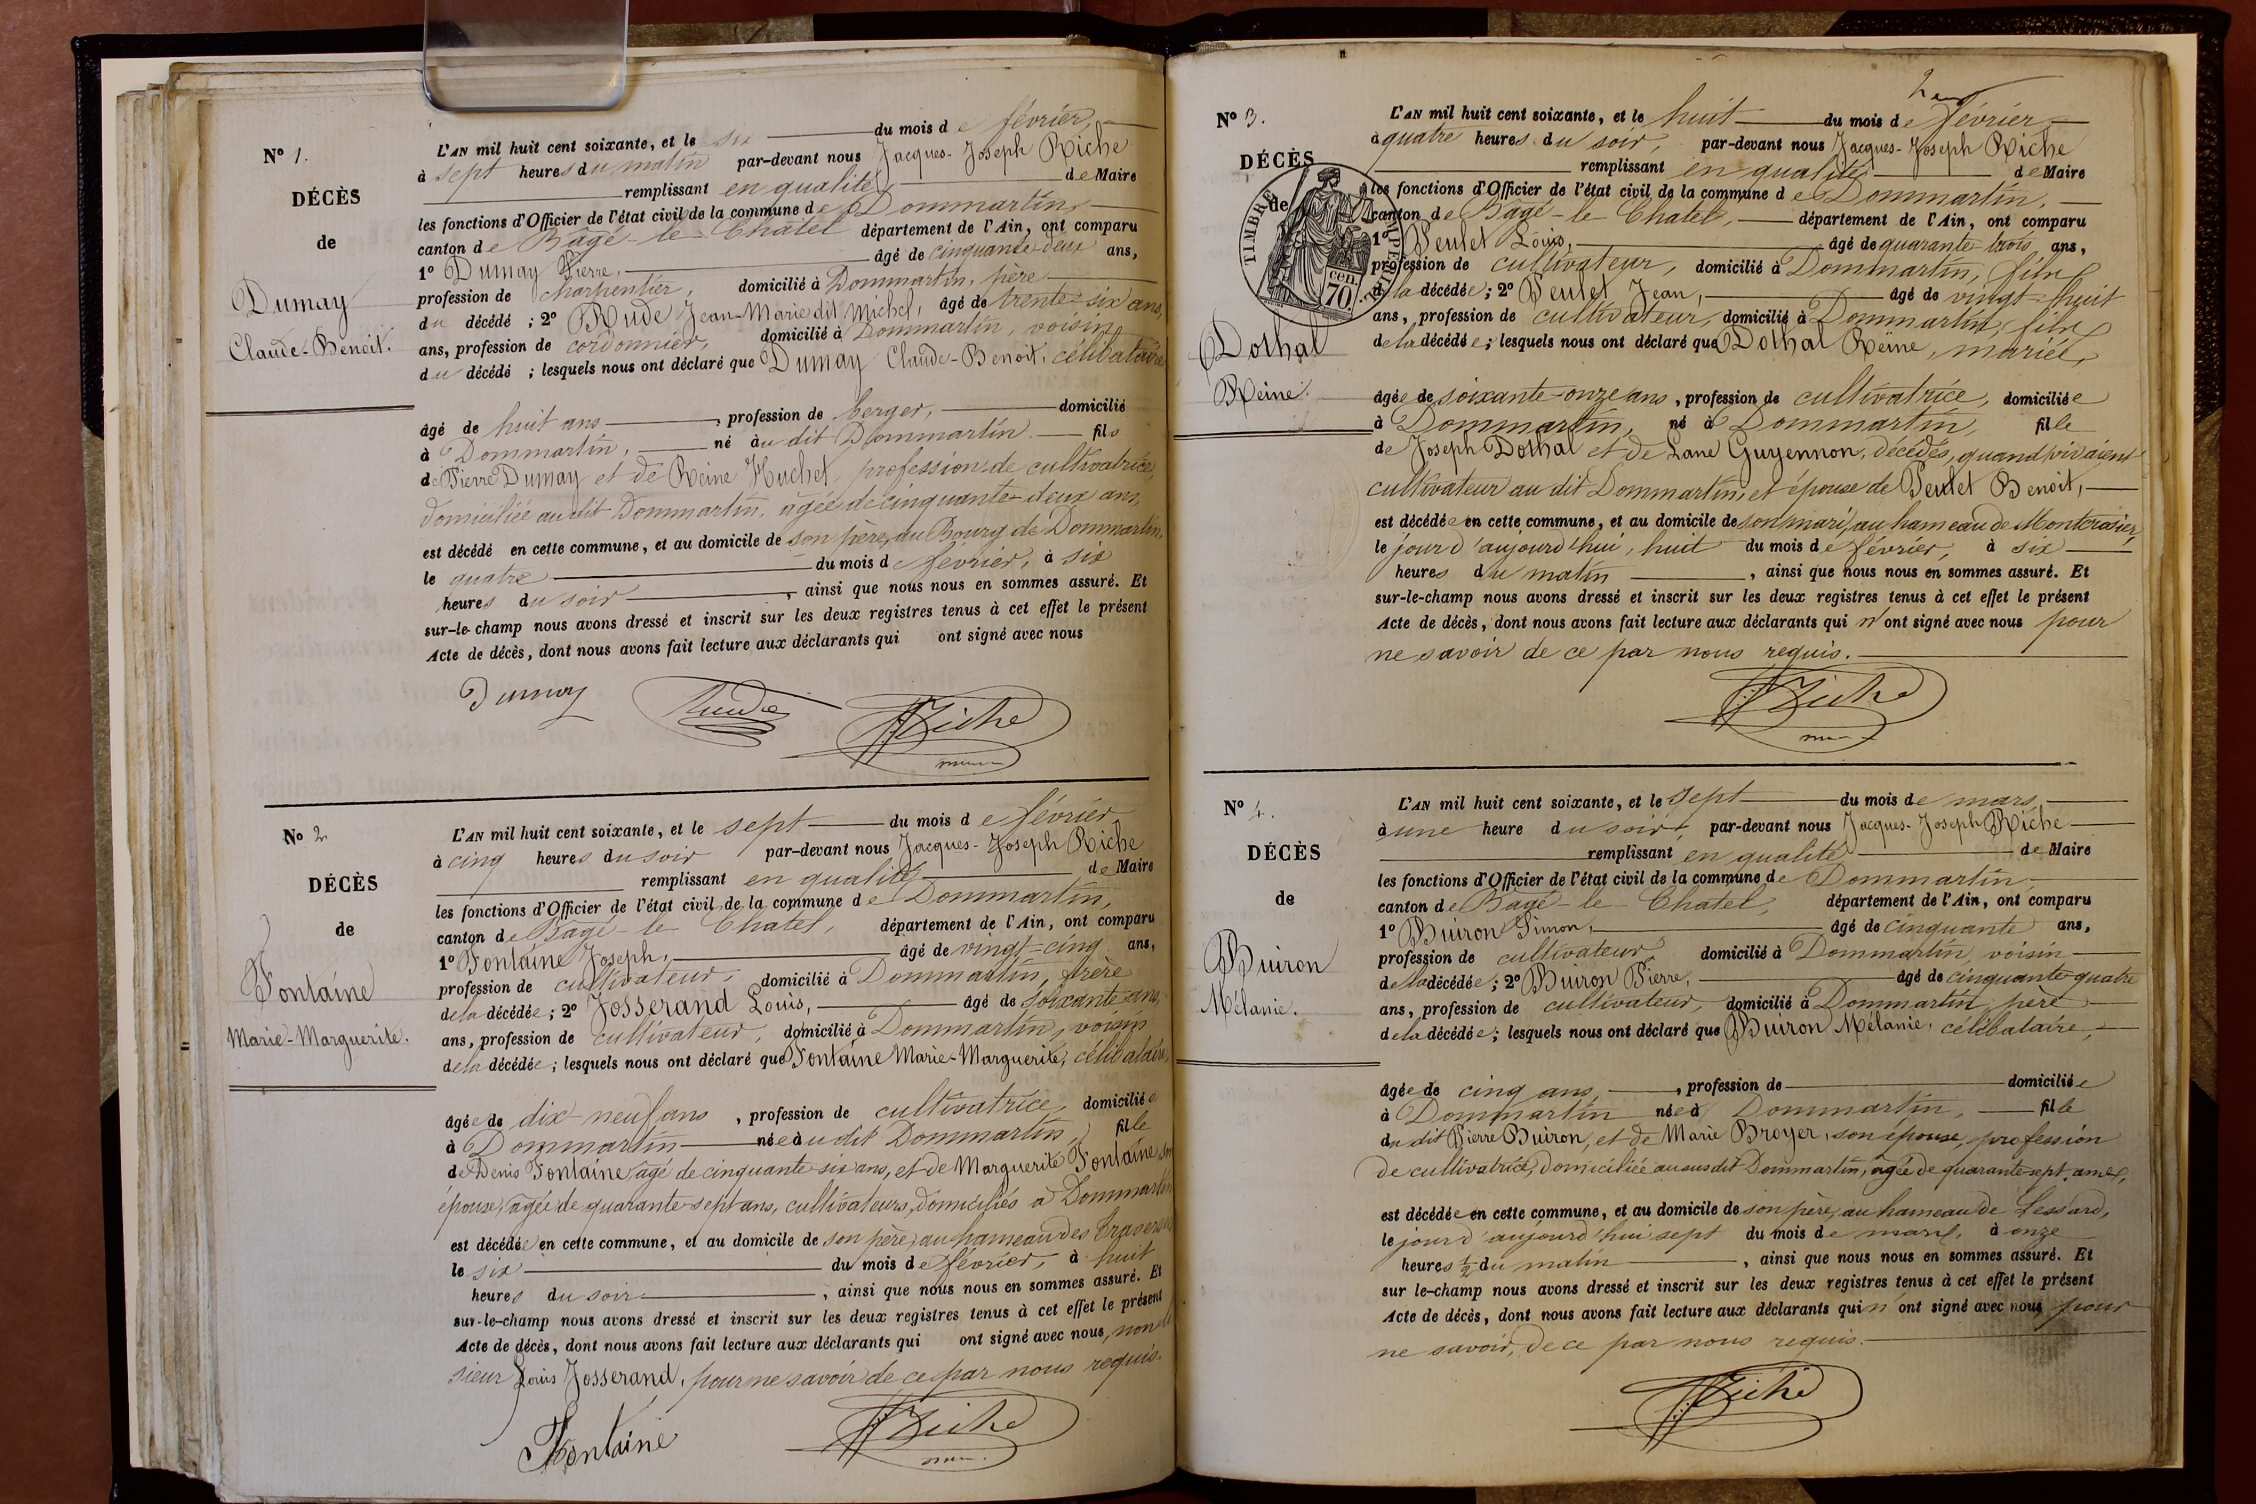 N° 1.
DÉCÈS
de
Dumay
Claude-Benoit.
L'AN mil huit cent soixante, et le six du mois de février,
à sept heures du matin par-devant nous Jacques-Joseph Riche
remplissant en qualité de Maire
les fonctions d'Officier de l'état civil de la commune de Dommartin,
canton de Bâgé-le-Chatel département de l'Ain, ont comparu
1° Dumay Pierre, âgé de cinquante-deux ans,
profession de charpentier, domicilié à Dommartin, père
du décédé ; 2° Rude Jean-Marie dit Michel, âgé de trente-six ans,
ans, profession de cordonnier, domicilié à Dommartin, voisin
du décédé ; lesquels nous ont déclaré que Dumay Claude-Benoit, célibataire
âgé de huit ans, profession de berger, domicilié
à Dommartin, né au dit Dommartin fils
de Pierre Dumay et de Reine Huchet, profession de cultivatrice,
domiciliée au dit Dommartin, âgée de cinquante-deux ans,
est décédé en cette commune, et au domicile de son père, au Bourg de Dommartin,
le quatre du mois de février, à six
heures du soir, ainsi que nous nous en sommes assuré. Et
sur-le-champ nous avons dressé et inscrit sur les deux registres tenus à cet effet le présent
Acte de décès, dont nous avons fait lecture aux déclarants qui ont signé avec nous
Dumay Rude Riche
N° 2
DÉCÈS
de
Fontaine
Marie-Marguerite.
L'AN mil huit cent soixante, et le sept du mois de février
à cinq heures du soir par-devant nous Jacques-Joseph Riche
remplissant en qualité de Maire
les fonctions d'Officier de l'état civil de la commune de Dommartin,
canton de Bâgé-le-Chatel, département de l'Ain, ont comparu
1° Fontaine Joseph, âgé de vingt-cinq ans,
profession de cultivateur, domicilié à Dommartin, frère
de la décédée ; 2° Josserand Louis, âgé de soixante ans,
ans, profession de cultivateur, domicilié à Dommartin, voisin
de la décédée ; lesquels nous ont déclaré que Fontaine Marie-Marguerite, célibataire,
âgée de dix-neuf ans, profession de cultivatrice, domiciliée
à Dommartin née au dit Dommartin, fille
de Denis Fontaine âgé de cinquante-six ans, et de Marguerite Fontaine son
épouse, âgée de quarante-sept ans, cultivateurs, domiciliés à Dommartin
est décédée en cette commune, et au domicile de son père, au hameau des
le six du mois de février, à huit
heures du soir, ainsi que nous nous en sommes assuré. Et
sur-le-champ nous avons dressé et inscrit sur les deux registres tenus à cet effet le présent
Acte de décès, dont nous avons fait lecture aux déclarants qui ont signé avec nous, non le
sieur Louis Josserand, pour ne savoir de ce par nous requis.
Fontaine Riche
N° 3.
DÉCÈS
de
TIMBRE IMPÉRIAL
70 cen.
Dothal
Reine.
L'AN mil huit cent soixante, et le huit du mois de février
à quatre heures du soir, par-devant nous Jacques-Joseph Riche
remplissant en qualité de Maire
les fonctions d'Officier de l'état civil de la commune de Dommartin,
canton de Bâgé-le-Chatel, département de l'Ain, ont comparu
1° Peulet Louis, âgé de quarante-trois ans,
profession de cultivateur, domicilié à Dommartin, fils
de la décédée ; 2° Peulet Jean, âgé de vingt-huit
ans, profession de cultivateur, domicilié à Dommartin, fils
de la décédée ; lesquels nous ont déclaré que Dothal Reine, mariée,
âgée de soixante-onze ans, profession de cultivatrice, domiciliée
à Dommartin, né à Dommartin, fille
de Joseph Dothal et de Lane Guyennon, décédés, quand vivaient
cultivateur au dit Dommartin, et épouse de Peulet Benoit,
est décédée en cette commune, et au domicile de son mari, au hameau de Montcrasier,
le jour d'aujourd'hui, huit du mois de février, à six
heures du matin, ainsi que nous nous en sommes assuré. Et
sur-le-champ nous avons dressé et inscrit sur les deux registres tenus à cet effet le présent
Acte de décès, dont nous avons fait lecture aux déclarants qui n'ont signé avec nous pour
ne savoir de ce par nous requis.
Riche
N° 4.
DÉCÈS
de
Buiron
Mélanie.
L'AN mil huit cent soixante, et le sept du mois de mars,
à une heure du soir, par-devant nous Jacques-Joseph Riche
remplissant en qualité de Maire
les fonctions d'Officier de l'état civil de la commune de Dommartin
canton de Bâgé-le-Chatel, département de l'Ain, ont comparu
1° Buiron Simon, âgé de cinquante ans,
profession de cultivateur, domicilié à Dommartin, voisin
de la décédée ; 2° Buiron Pierre, âgé de cinquante-quatre
ans, profession de cultivateur, domicilié à Dommartin, père
de la décédée ; lesquels nous ont déclaré que Buiron Mélanie, célibataire,
âgée de cinq ans, profession de domiciliée
à Dommartin née à Dommartin, fille
du dit Pierre Buiron, et de Marie Broyer, son épouse, profession
de cultivatrice, domiciliée au susdit Dommartin, âgée de quarante-sept années,
est décédée en cette commune, et au domicile de son père, au hameau de Lessard,
le jour d'aujourd'hui sept du mois de mars, à onze
heures ½ du matin, ainsi que nous nous en sommes assuré. Et
sur le-champ nous avons dressé et inscrit sur les deux registres tenus à cet effet le présent
Acte de décès, dont nous avons fait lecture aux déclarants qui n'ont signé avec nous pour
ne savoir, de ce par nous requis.
Riche